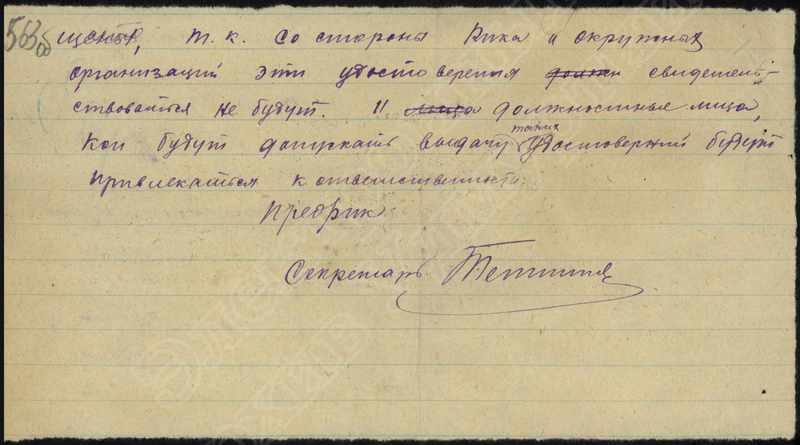 563 об
щ..., т.к. со стороны Рика и окружных
организаций эти удостоверения ~~должн~~ свидетель-
ствоваться не будут. И ~~лица~~ должностные лица,
кои будут допускать выдачу таких удостоверений будут
привлекаться к ответственности.
Предрик
Секретарь